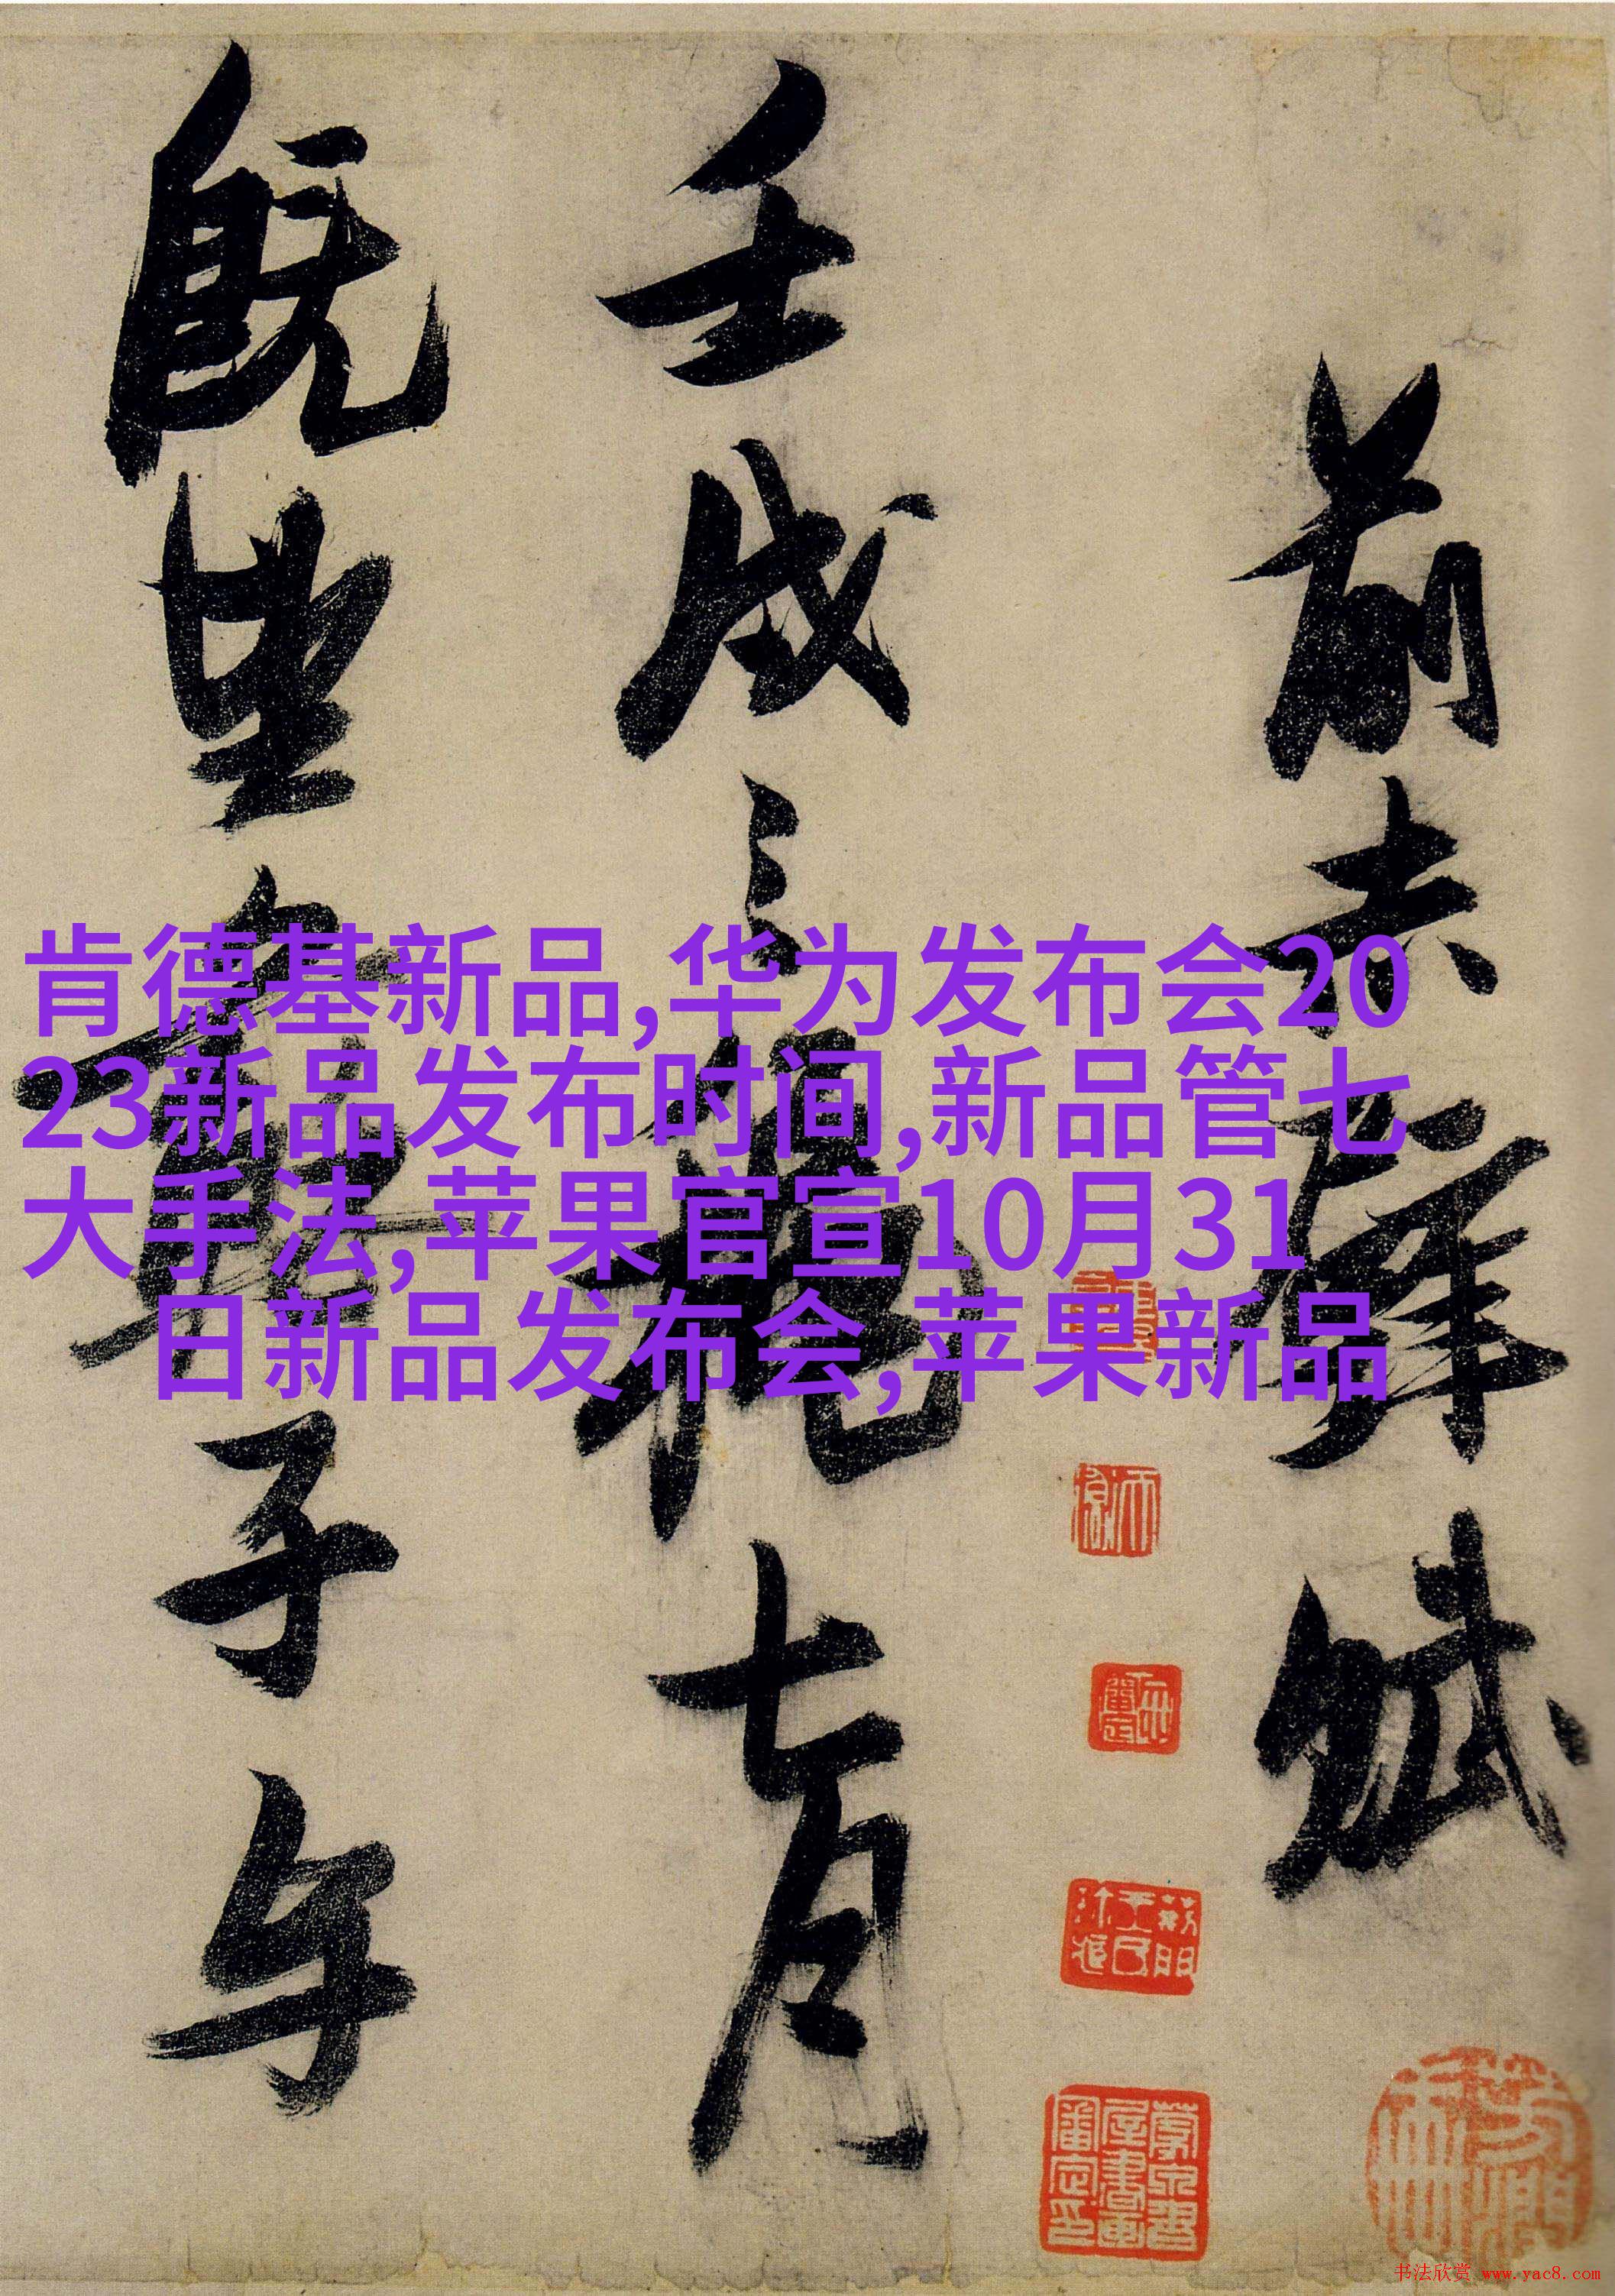 前赤壁賦
壬戌之秋七月
既望蘇子与
肯德基新品,华为发布会20
23新品发布时间,新品管七
大手法,苹果官宣10月31
日新品发布会,苹果新品
书法欣赏 www.yac8.com